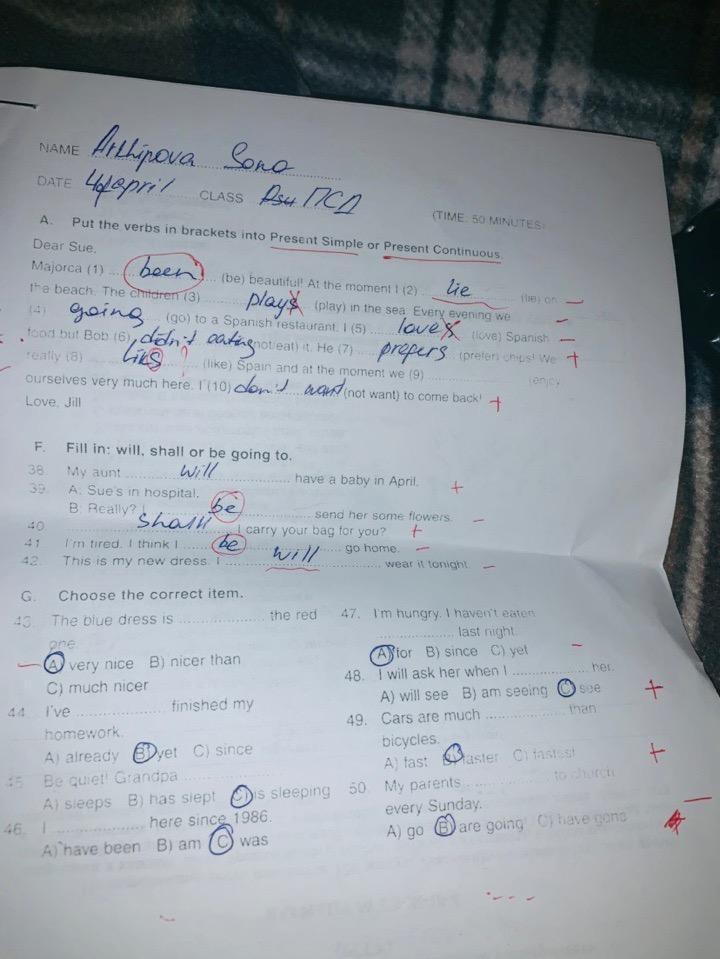 NAME Arhipova Sona
DATE 4 april CLASS ПСД
(TIME: 50 MINUTES)
A. Put the verbs in brackets into Present Simple or Present Continuous.
Dear Sue,
Majorca (1) been (be) beautiful! At the moment I (2) lie (lie) on
the beach. The children (3) plays (play) in the sea. Every evening we
(4) going (go) to a Spanish restaurant. I (5) loves (love) Spanish
food but Bob (6) didn't eating (not eat) it. He (7) prefers (prefer) chips! We
really (8) liks (like) Spain and at the moment we (9) .......... (enjoy)
ourselves very much here. I (10) don't want (not want) to come back!
Love, Jill
F. Fill in: will, shall or be going to.
38. My aunt will have a baby in April.
39. A: Sue's in hospital.
B: Really? I be send her some flowers.
40. shall I carry your bag for you?
41. I'm tired. I think I be go home.
42. This is my new dress. I will wear it tonight.
G. Choose the correct item.
43. The blue dress is .......... the red
one.
A) very nice B) nicer than
C) much nicer
44. I've .......... finished my
homework.
A) already B) yet C) since
45. Be quiet! Grandpa ..........
A) sleeps B) has slept C) is sleeping
46. I .......... here since 1986.
A) have been B) am C) was
47. I'm hungry. I haven't eaten
.......... last night.
A) for B) since C) yet
48. I will ask her when I .......... her.
A) will see B) am seeing C) see
49. Cars are much .......... than
bicycles.
A) fast B) faster C) fastest
50. My parents .......... to church
every Sunday.
A) go B) are going C) have gone